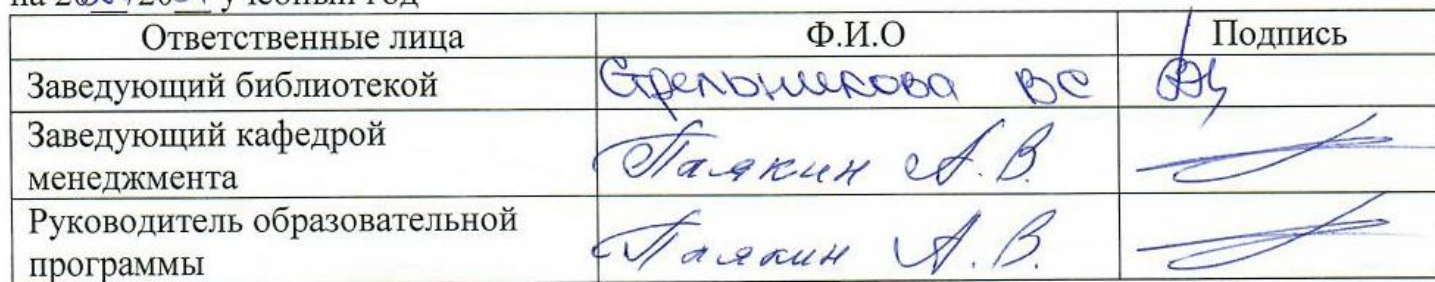 учебный год
Ответственные лица Ф.И.О Подпись
Заведующий библиотекой Стрельникова ВС
Заведующий кафедрой
менеджмента Палякин А.В.
Руководитель образовательной
программы Палякин А.В.